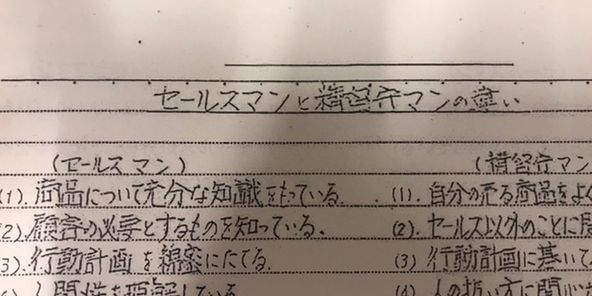 セールスマンと精留守マンの違い
(セールスマン)
(1). 商品について充分な知識をもっている.
(2) 顧客の必要とするものを知っている。
(3). 行動計画を綿密にたてる.
人間性を理解している
(精留守マン
(1). 自分の売る商品をよ
(2). セールス以外のことに
(3) 行動計画に基いて
(4) 人の扱い方に関心